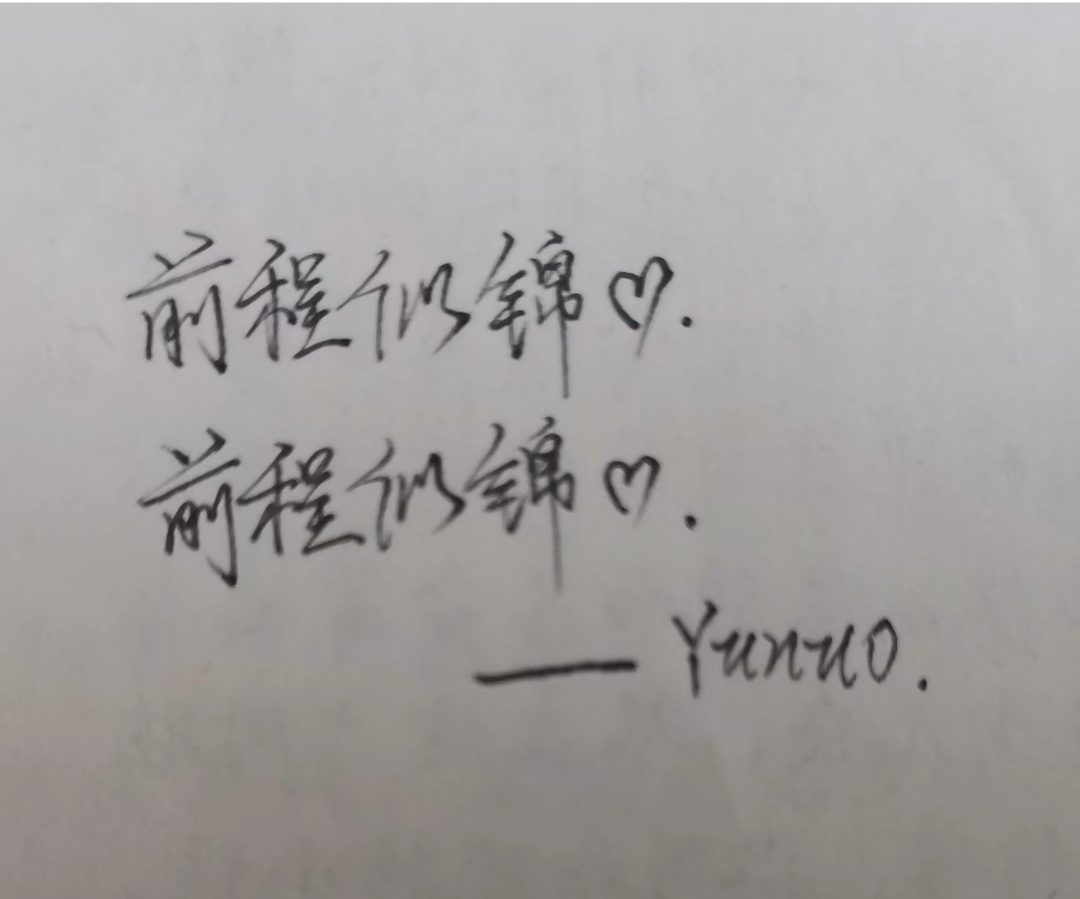 前程似锦♡.
前程似锦♡.
——Yunuo.